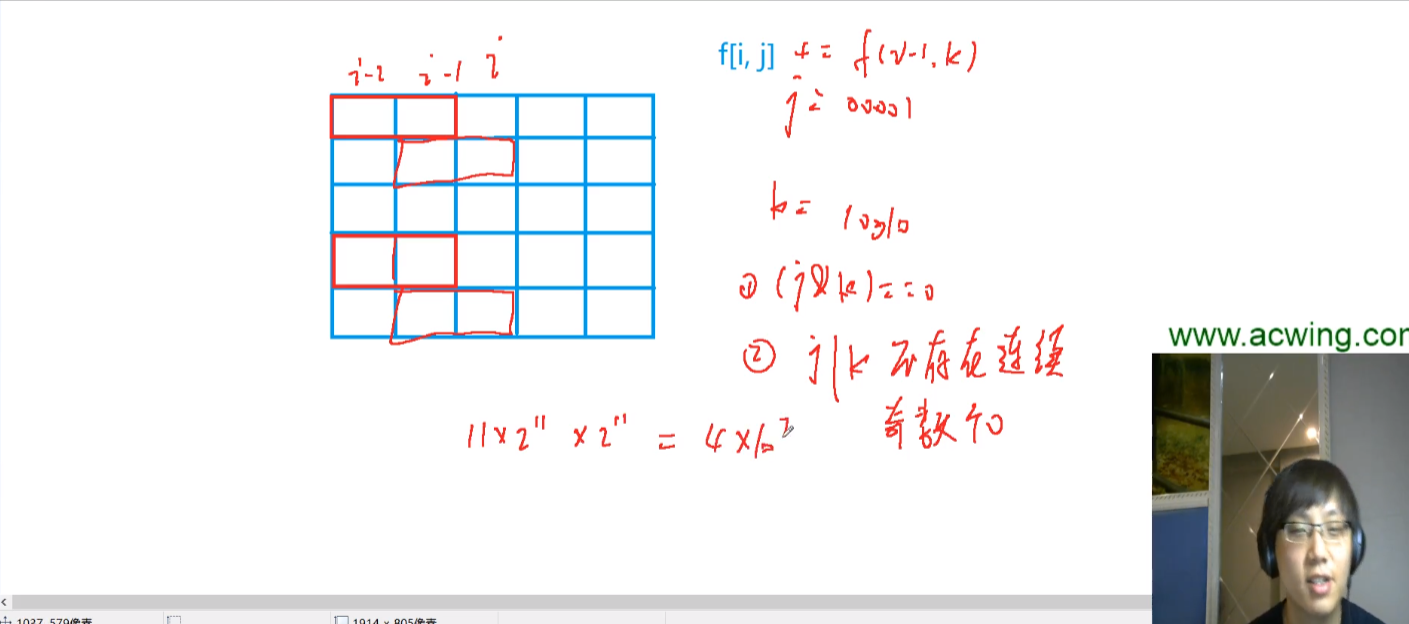 i-2 i-1 i
f[i, j] += f(i-1, k)
j = 00001
k = 10010
① (j & k) == 0
② j | k 不存在连续
奇数个0
11 × 2^11 × 2^11 = 4 × 10^7
www.acwing.cor
1037, 579像素
1914 × 805像素